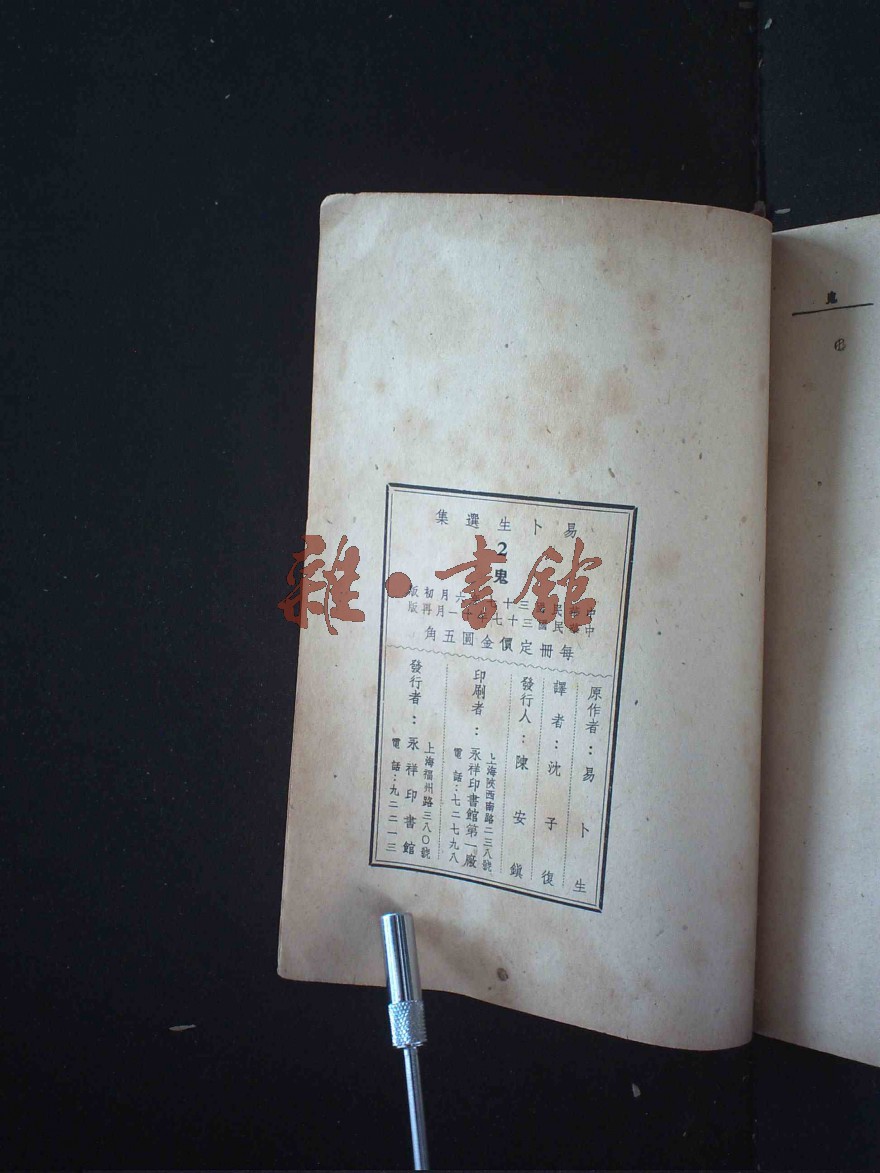 易卜生選集
2
鬼
中華民國三十 六月初版
中華民國三十七年十一月再版
每冊定價金圓五角
原作者：易卜生
譯者：沈子復
發行人：陳安鎭
印刷者：永祥印書館第一廠
上海陝西南路二三八號
電話：七二七九八
發行者：永祥印書館
上海福州路三八〇號
電話：九二二一三
鬼
雜·書館